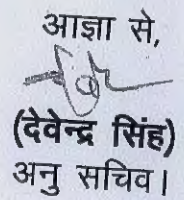 आज्ञा से,
(देवेन्द्र सिंह)
अनु सचिव।